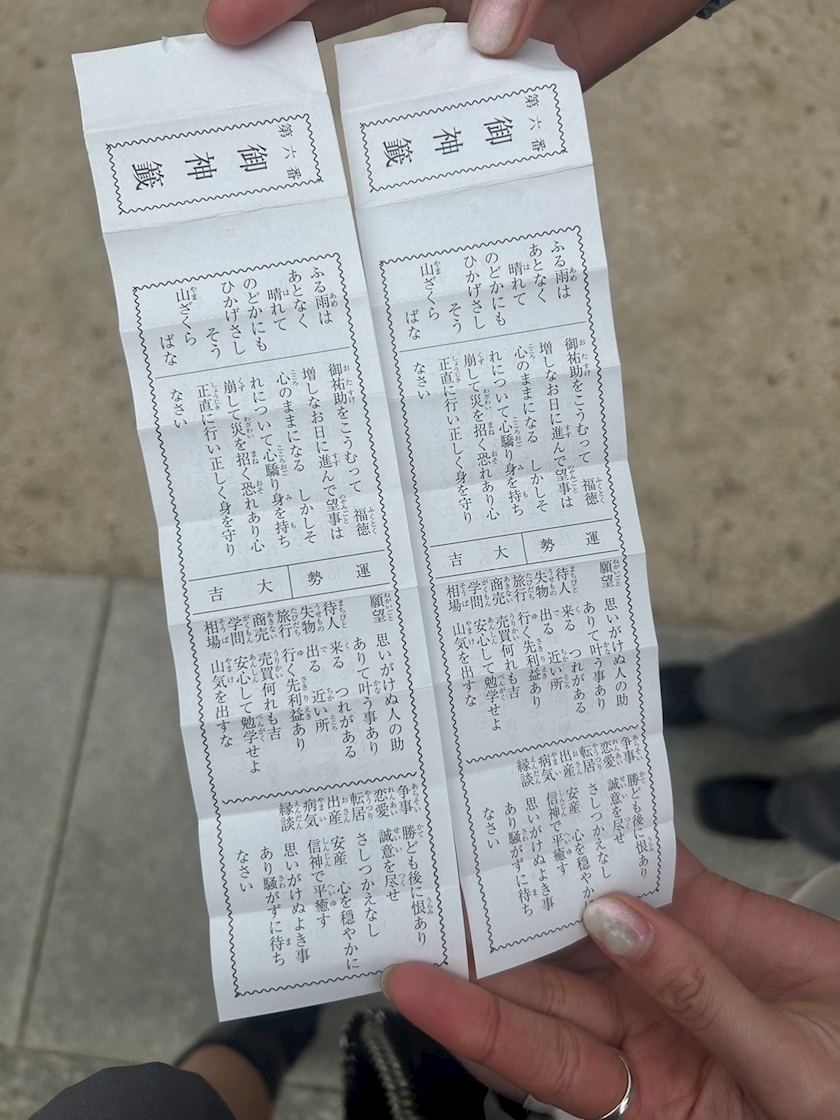 第六番
御神籤
ふる雨は
あとなく
晴れて
のどかにも
ひかげさし
そう
山ざくら
ばな
御祐助をこうむって 福徳
増しなお日に進んで望事は
心のままになる しかしそ
れについて心驕り身を持ち
崩して災を招く恐れあり心
正直に行い正しく身を守り
なさい
運勢
大吉
願望 思いがけぬ人の助
ありて叶う事あり
待人 来る つれがある
失物 出る 近い所
旅行 行く先利益あり
商売 売買何れも吉
学問 安心して勉学せよ
相場 山気を出すな
争事 勝ども後に恨あり
恋愛 誠意を尽せ
転居 さしつかえなし
出産 安産 心を穏やかに
病気 信神で平癒す
縁談 思いがけぬよき事
あり騒がずに待ち
なさい
第六番
御神籤
ふる雨は
あとなく
晴れて
のどかにも
ひかげさし
そう
山ざくら
ばな
御祐助をこうむって 福徳
増しなお日に進んで望事は
心のままになる しかしそ
れについて心驕り身を持ち
崩して災を招く恐れあり心
正直に行い正しく身を守り
なさい
運勢
大吉
願望 思いがけぬ人の助
ありて叶う事あり
待人 来る つれがある
失物 出る 近い所
旅行 行く先利益あり
商売 売買何れも吉
学問 安心して勉学せよ
相場 山気を出すな
争事 勝ども後に恨あり
恋愛 誠意を尽せ
転居 さしつかえなし
出産 安産 心を穏やか
病気 信神で平癒す
縁談 思いがけぬよき事
あり騒がずに待ち
なさい